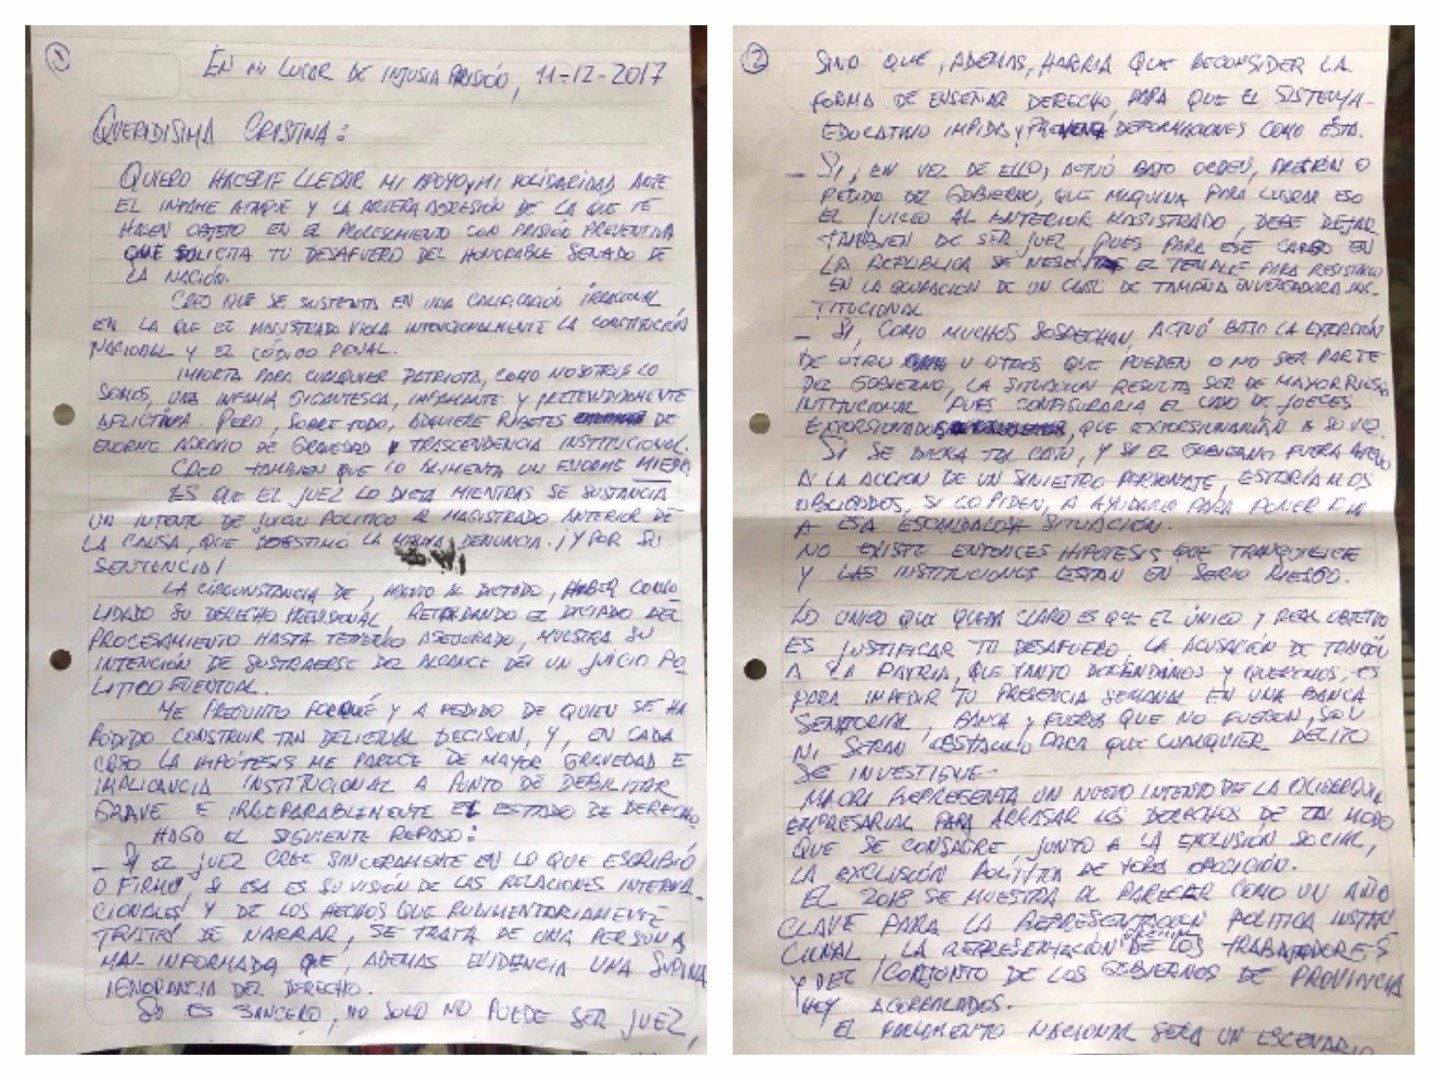 1
EN MI LUGAR DE INJUSTA PRISIÓN, 11-12-2017
QUERIDISIMA CRISTINA:
QUIERO HACERTE LLEGAR MI APOYO Y MI SOLIDARIDAD ANTE
EL INFAME ATAQUE Y LA ARTERA AGRESIÓN DE LA QUE TE
HACEN OBJETO EN EL PROCESAMIENTO CON PRISIÓN PREVENTIVA
QUE SOLICITA TU DESAFUERO DEL HONORABLE SENADO DE
LA NACIÓN.
CREO QUE SE SUSTENTA EN UNA CALIFICACIÓN IRRACIONAL
EN LA QUE EL MAGISTRADO VIOLA INTENCIONALMENTE LA CONSTITUCIÓN
NACIONAL Y EL CÓDIGO PENAL.
IMPORTA PARA CUALQUIER PATRIOTA, COMO NOSOTROS LO
SOMOS, UNA INFAMIA GIGANTESCA, INFAMANTE Y PRETENDIDAMENTE
AFLICTIVA. PERO, SOBRE TODO, ADQUIERE RIBETES DE
ENORME AGRAVIO DE GRAVEDAD Y TRASCENDENCIA INSTITUCIONAL.
CREO TAMBIEN QUE LO ALIMENTA UN ENORME MIEDO.
ES QUE EL JUEZ LO DICTA MIENTRAS SE SUSTANCIA
UN INTENTO DE JUICIO POLITICO AL MAGISTRADO ANTERIOR DE
LA CAUSA, QUE DESESTIMÓ LA MISMA DENUNCIA. ¡Y POR SU
SENTENCIA!
LA CIRCUNSTANCIA DE, PREVIO AL DICTADO, HABER CONSO
LIDADO SU DERECHO PREVISIONAL, RETARDANDO EL DICTADO DEL
PROCESAMIENTO HASTA TENERLO ASEGURADO, MUESTRA SU
INTENCIÓN DE SUSTRAERSE DEL ALCANCE DE UN JUICIO PO
LITICO EVENTUAL.
ME PREGUNTO PORQUÉ Y A PEDIDO DE QUIEN SE HA
PODIDO CONSTRUIR TAN DELICTUAL DECISION, Y, EN CADA
CASO LA HIPÓTESIS ME PARECE DE MAYOR GRAVEDAD E
IMPLICANCIA INSTITUCIONAL A PUNTO DE DEBILITAR
GRAVE E IRREPARABLEMENTE EL ESTADO DE DERECHO.
HAGO EL SIGUIENTE REPASO:
- SI EL JUEZ CREE SINCERAMENTE EN LO QUE ESCRIBIÓ
O FIRMÓ, SI ESA ES SU VISIÓN DE LAS RELACIONES INTERNA-
CIONALES Y DE LOS HECHOS QUE RUDIMENTARIAMENTE
TRATA DE NARRAR, SE TRATA DE UNA PERSONA
MAL INFORMADA QUE, ADEMAS EVIDENCIA UNA SUPINA
IGNORANCIA DEL DERECHO.
SI ES SINCERO, NO SOLO NO PUEDE SER JUEZ,
2
SINO QUE, ADEMAS, HABRIA QUE RECONSIDER LA
FORMA DE ENSEÑAR DERECHO, PARA QUE EL SISTEMA
EDUCATIVO IMPIDA Y PREVENGA DEFORMACIONES COMO ÉSTA.
- SI, EN VEZ DE ELLO, ACTUÓ BAJO ORDEN, PRESIÓN O
PEDIDO DEL GOBIERNO, QUE MAQUINA PARA LOGRAR ESO
EL JUICIO AL ANTERIOR MAGISTRADO, DEBE DEJAR
TAMBIEN DE SER JUEZ, PUES PARA ESE CARGO EN
LA REPUBLICA SE NESECITA EL TEMPLE PARA RESISTIRLO
EN LA OCUPACION DE UN CASO DE TAMAÑA ENVERGADURA INS-
TITUCIONAL.
- SI, COMO MUCHOS SOSPECHAN, ACTUÓ BAJO LA EXTORSIÓN
DE OTRO U OTROS QUE PUEDEN O NO SER PARTE
DEL GOBIERNO, LA SITUACION RESULTA SER DE MAYOR RIESGO
INTITUCIONAL PUES CONFIGURARIA EL CASO DE JUECES
EXTORSIONADOS, QUE EXTORSIONARIAN A SU VEZ.
SI SE DIERA TAL CASO, Y SI EL GOBIERNO FUERA AJENO
A LA ACCION DE UN SINIESTRO PERSONAJE, ESTARÍAMOS
OBLIGADOS, SI LO PIDEN, A AYUDARLO PARA PONER FIN
A ESA ESCANDALOSA SITUACION.
NO EXISTE ENTONCES HIPOTESIS QUE TRANQUILICE
Y LAS INSTITUCIONES ESTAN EN SERIO RIESGO.
LO UNICO QUE QUEDA CLARO ES QUE EL ÚNICO Y REAL OBJETIVO
ES JUSTIFICAR TU DESAFUERO. LA ACUSACIÓN DE TRAICIÓN
A LA PATRIA, QUE TANTO DEFENDIMOS Y QUEREMOS, ES
PARA IMPEDIR TU PRESENCIA SEMANAL EN UNA BANCA
SENATORIAL, BANCA Y FUEROS QUE NO FUERON, SON
NI SERAN OBSTACULO PARA QUE CUALQUIER DELITO
SE INVESTIGUE.
MACRI REPRESENTA UN NUEVO INTENTO DE LA OLIGARQUIA
EMPRESARIAL PARA ARRASAR LOS DERECHOS DE TAL MODO
QUE SE CONSAGRE JUNTO A LA EXCLUSIÓN SOCIAL,
LA EXCLUSIÓN POLÍTICA DE TODA OPOSICIÓN.
EL 2018 SE MUESTRA AL PARECER COMO UN AÑO
CLAVE PARA LA REPRESENTACION POLITICA INSTITU
CIONAL, LA REPRESENTACIÓN GREMIAL DE LOS TRABAJADORES
Y DEL CONJUNTO DE LOS GOBIERNOS DE PROVINCIA
HOY ACORRALADOS.
EL PARLAMENTO NACIONAL SERA UN ESCENARIO